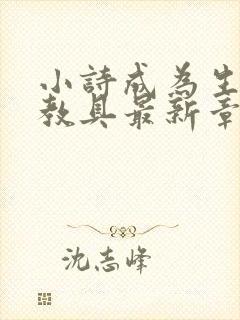 小詩成為生
教具最新章
沈志峰